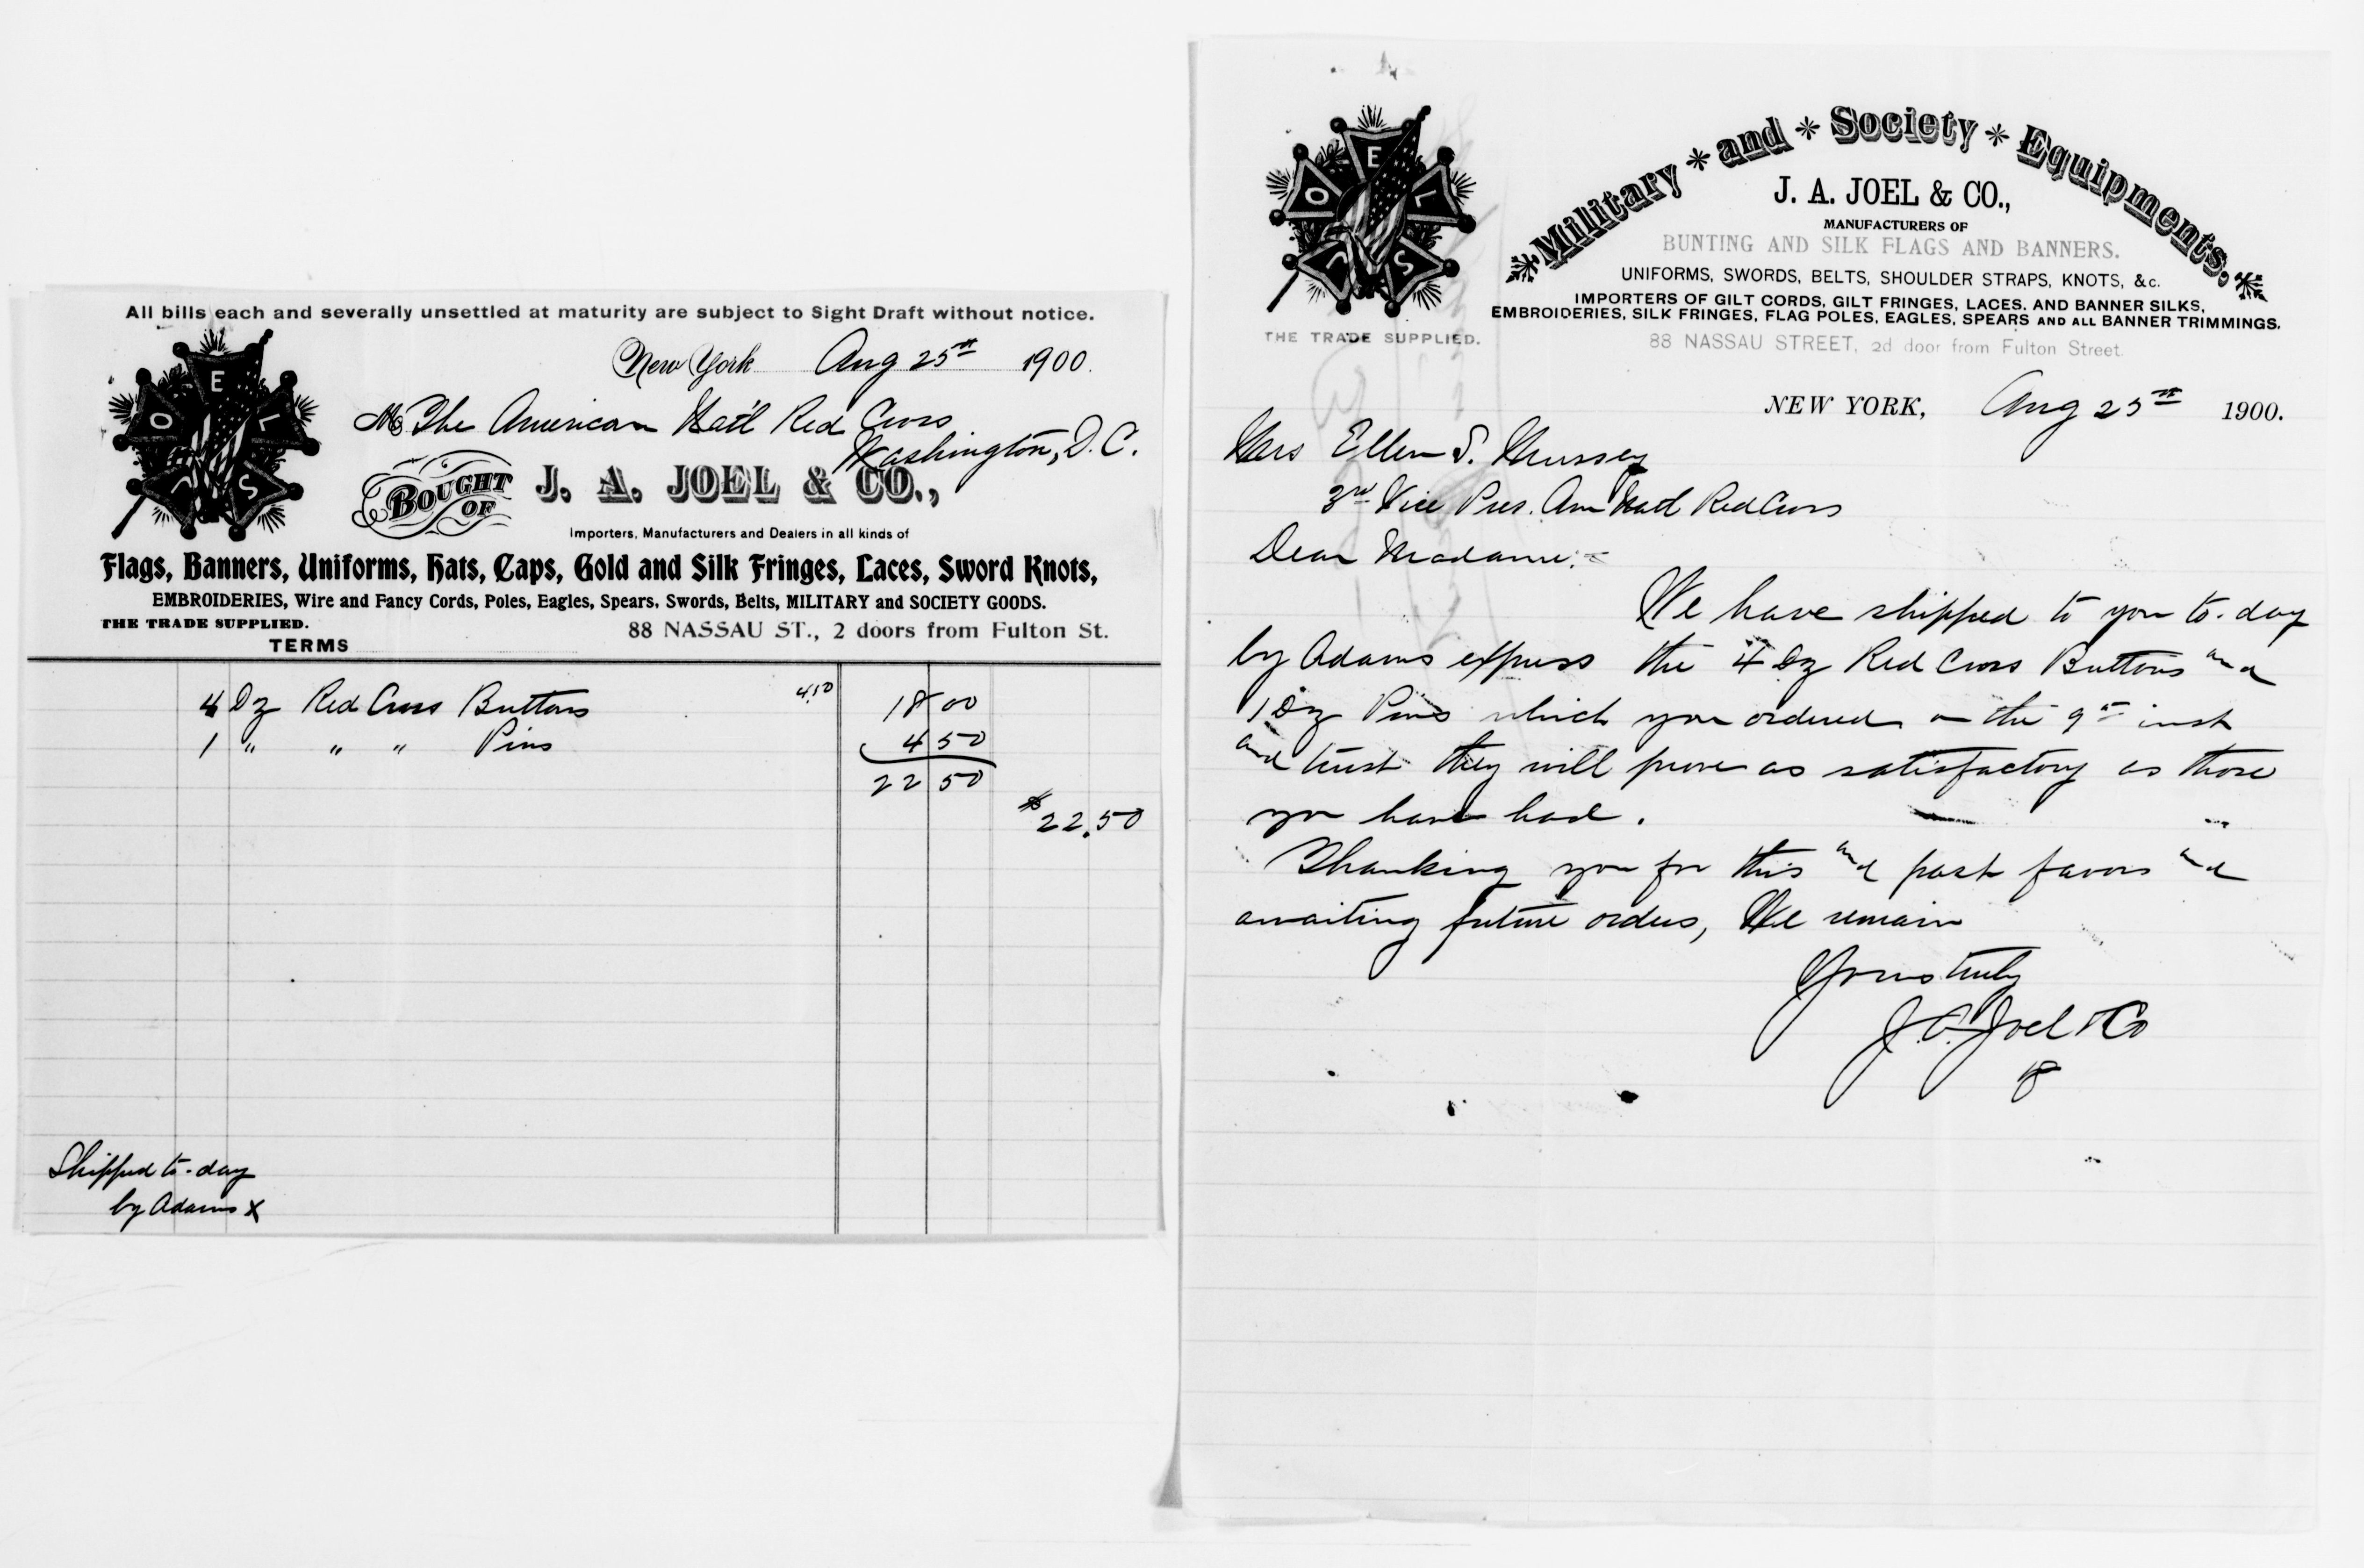 All bills each and severally unsettled at maturity are subject to Sight Draft without notice.
New York Aug 25th 1900.
J O E L S
M The American Nat'l Red Cross
Washington, D. C.
BOUGHT OF J. A. JOEL & CO.,
Importers, Manufacturers and Dealers in all kinds of
Flags, Banners, Uniforms, Hats, Caps, Gold and Silk Fringes, Laces, Sword Knots,
EMBROIDERIES, Wire and Fancy Cords, Poles, Eagles, Spears, Swords, Belts, MILITARY and SOCIETY GOODS.
THE TRADE SUPPLIED.
88 NASSAU ST., 2 doors from Fulton St.
TERMS
4 Dz Red Cross Buttons 4.50 18 00
1 " " " Pins 4 50
22 50
$22.50
Shipped to-day
by Adams X
J O E L S
Military and Society Equipments.
J. A. JOEL & CO.,
MANUFACTURERS OF
BUNTING AND SILK FLAGS AND BANNERS.
UNIFORMS, SWORDS, BELTS, SHOULDER STRAPS, KNOTS, &c.
IMPORTERS OF GILT CORDS, GILT FRINGES, LACES, AND BANNER SILKS,
EMBROIDERIES, SILK FRINGES, FLAG POLES, EAGLES, SPEARS AND ALL BANNER TRIMMINGS.
THE TRADE SUPPLIED.
88 NASSAU STREET, 2d door from Fulton Street.
NEW YORK, Aug 25th 1900.
Mrs Ellen S. Mussey
3rd Vice Pres. Am Natl Red Cross
Dear Madame:-
We have shipped to you to-day
by Adams express the 4 Dz Red Cross Buttons and
1 Dz Pins which you ordered on the 9th inst
and trust they will prove as satisfactory as those
you have had.
Thanking you for this and past favors and
awaiting future orders, We remain
Yours truly
J. A. Joel & Co